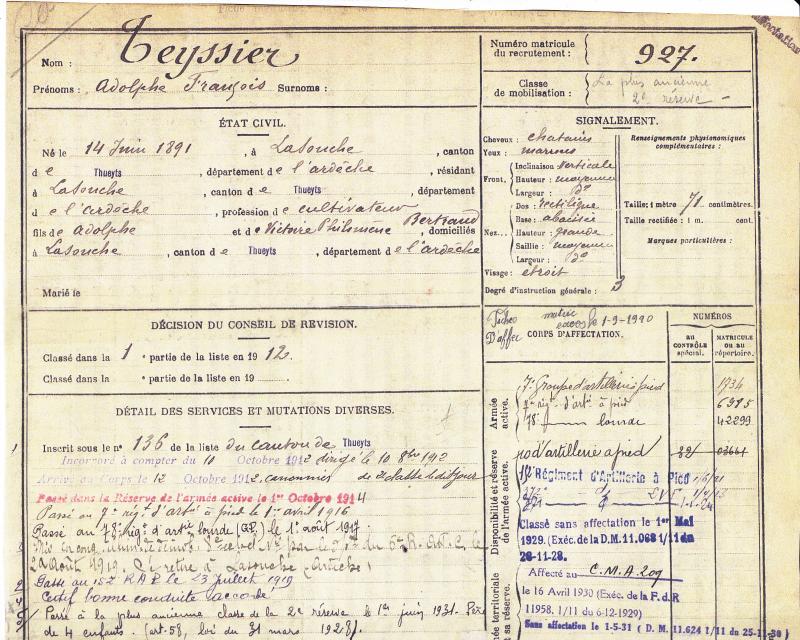 Nom : Teyssier
Prénoms : Adolphe François Surnoms :
Numéro matricule du recrutement : 927.
Classe de mobilisation : La plus ancienne 2e réserve
ÉTAT CIVIL.
Né le 14 Juin 1891, à Lasouche, canton
de Thueyts, département de l'ardèche, résidant
à Lasouche, canton de Thueyts, département
de l'ardèche, profession de cultivateur
fils de Adolphe et de Victoire Philomene Bertrand, domiciliés
à Lasouche, canton de Thueyts, département de l'ardèche
Marié le
SIGNALEMENT.
Cheveux : chatains
Yeux : marrons
Front. Inclinaison : Verticale
Hauteur : moyenne
Largeur : do
Nez... Dos : rectiligne
Base : abaissée
Hauteur : grande
Saillie : moyenne
Largeur : do
Visage : étroit
Degré d'instruction générale : 3
Renseignements physionomiques complémentaires :
Taille : 1 mètre 71 centimètres.
Taille rectifiée : 1 m. cent.
Marques particulières :
DÉCISION DU CONSEIL DE REVISION.
Classé dans la 1e partie de la liste en 1912.
Classé dans la e partie de la liste en 19
DÉTAIL DES SERVICES ET MUTATIONS DIVERSES.
Inscrit sous le no 136 de la liste du canton de Thueyts
Incorporé à compter du 10 Octobre 1912 dirigé le 10 8bre 1912
Arrivé au Corps le 12 Octobre 1912, canonnier de 2e classe le dit jour
Passé dans la Réserve de l'armée active le 1er Octobre 1914
Passé au 7e rég. d'arte à pied le 1er avril 1916
Passé au 78e rég. d'artie lourde (G.P.) le 1er août 1917
août 1919. Se retire à Lasouche (Ardèche)
Passé au 152 R.A.P. le 23 juillet 1919
Certif. bonne conduite accordé
Passé à la plus ancienne classe de la 2e réserve le 1er juin 1931. Père
de 4 enfants. (art. 58, loi du 31 mars 1928).
1-9-1940
CORPS D'AFFECTATION.
NUMÉROS
AU CONTRÔLE spécial.
MATRICULE OU AU répertoire.
Armée active.
7e Groupe d'artillerie à pied 1936
7e rég. d'arte à pied
78e lourde 42299
Disponibilité et réserve de l'armée active.
d'artillerie à pied
Régiment d'Artillerie à Pied
Classé sans affectation le 1er Mai
1929. (Exéc. de la D.M. 11.068 1/11 du
26-11-28.
Affecté au C.M.A. 209
le 16 Avril 1930 (Exéc. de la F.d.R
11958. 1/11 du 6-12-1929)
Sans affectation le 1-5-31 (D.M. 11.624 1/11 du 25-11-30)